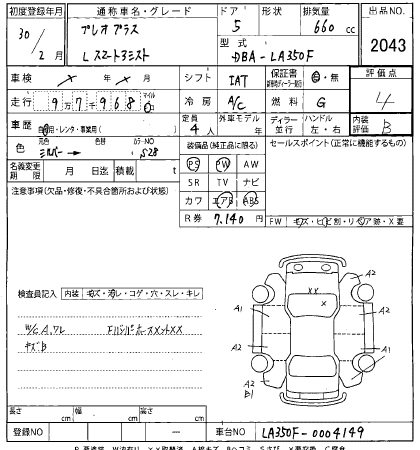 初度登録年月 通称車名・グレード ドア 形状 排気量 出品NO.
30/2月 プレオプラス 5 660cc 2043
L スマートアシスト 型式 DBA-LA350F
車検 × 年 × 月 シフト IAT 保証書 有・無 評価点
走行 9万7968 マイル 冷房 A/C 燃料 G 4
車歴 自家用・レンタ・事業用( ) 定員 4人 外車モデル 年 ディーラー 並行 ハンドル 左・右 内装評価 B
色 元色 シルバー → 色替 カラーNO S28 装備品(純正品に限る) セールスポイント(正常に機能するもの)
名義変更期限 月 日迄 積載 t PS PW AW
注意事項(欠品・修復・不具合箇所および状態) SR TV ナビ
カワ エアB ABS
R券 7,140円 FW キズ・ヒビ割・リペア跡・X要
検査員記入 内装 キズ・汚レ・コゲ・穴・スレ・キレ
W/C A,ワレ
キズB
A2 A2
A1 X X
A2 A2
A2 B1 A1
長さ cm 幅 cm 高さ cm
登録NO ― 車台NO LA350F-0004149